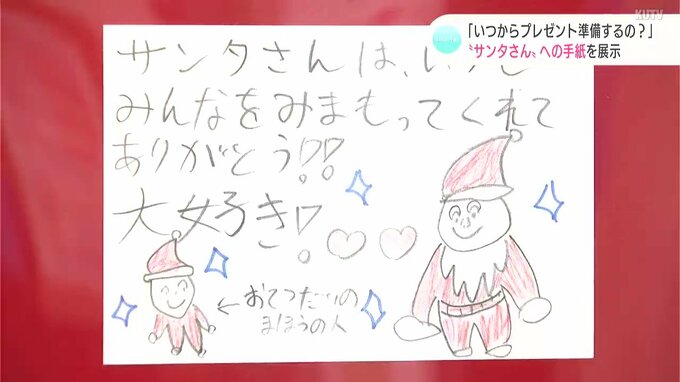 KUTV
「いつからプレゼント準備するの？」
〝サンタさん〟への手紙を展示
サンタさんは、
みんなをみまもってくれて
ありがとう!!
大好き!
←おてつだいの
まほうの人